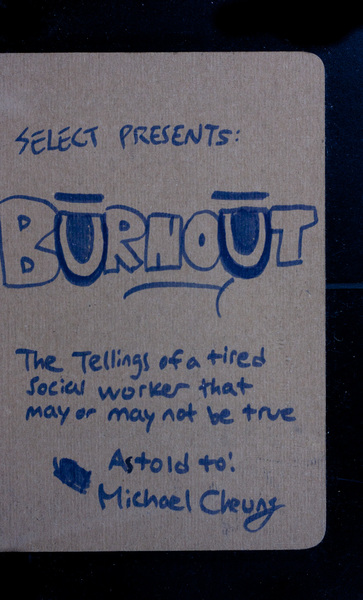 SELECT PRESENTS:
BURNOUT
The Tellings of a tired
Social worker that
may or may not be true
As told to:
Michael Cheung